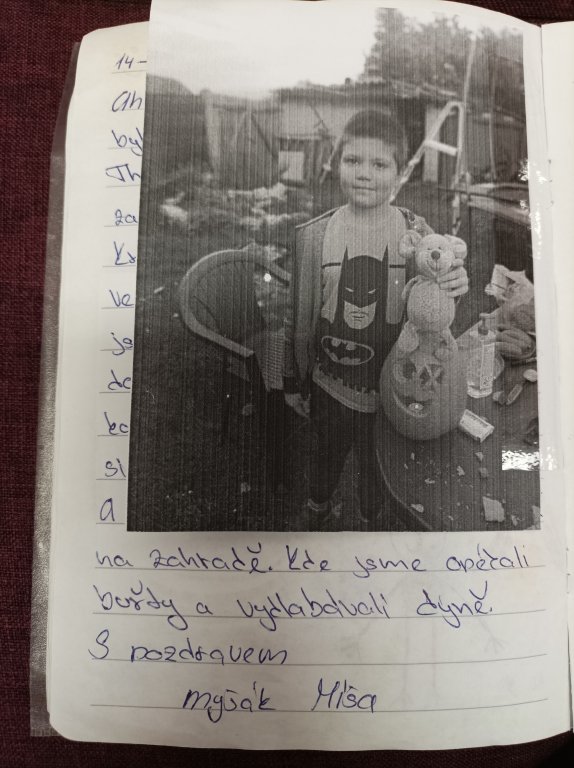 14-
Ah
by
Th
za
ve
js
sl
A
na zahradě. Kde jsme opékali
buřty a vydlabávali dýně.
S pozdravem
myšák Míša